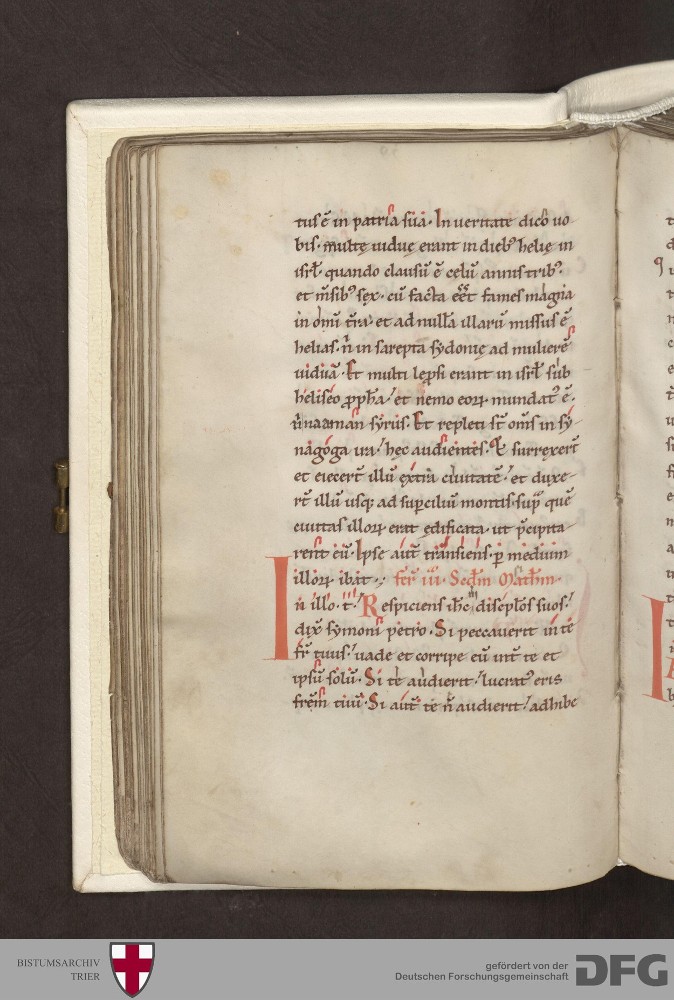 tuſ ē in patria ſua. In ueritate dico uo
biſ. multę uiduę erant in dieb; helię in
iſrł. quando clauſū ē celū anniſ trib;
et m̄ſib; ſex. cū facta eēt fameſ magna
in om̄i t̄ra. et ad nullā illarū miſſuſ ē
heliaſ. n̄ in ſarepta ſydonię ad mulierē
uiduā. Et multi lepſi erant in iſrł ſub
heliſeo ꝓpħa. et nemo eoꝝ mundat᷒ ē.
n̄ naaman ſyruſ. Et repleti ſt̄ om̄ſ in ſy
nagoga ira. hęc audienteſ. Et ſurrexert̄
et eiecert̄ illū extra ciuitatē. et duxe
rt̄ illū uſq; ad ſuꝑciliū montiſ. ſup̄ quē
ciuitaſ illoꝝ erat ędificata. ut p̄cipita
rent eū. Ipſe aut̄ tranſienſ. ꝑ medium
illoꝝ ibat. fer̄ iii. Scd̄m Math̄m.
In illo. t̄. Reſpicienſ ih̄c diſcipłoſ ſuoſ.
dix̄ ſymoni petro. Si peccauerit in te
fr̄ tuuſ. uade et corripe eū int̄ te et
ipſū ſolū. Si te audierit. lucrat᷒ eriſ
frēm tuū. Si aut̄ te n̄ audierit. adhibe
BISTUMSARCHIV
TRIER
gefördert von der
Deutschen Forschungsgemeinschaft
DFG